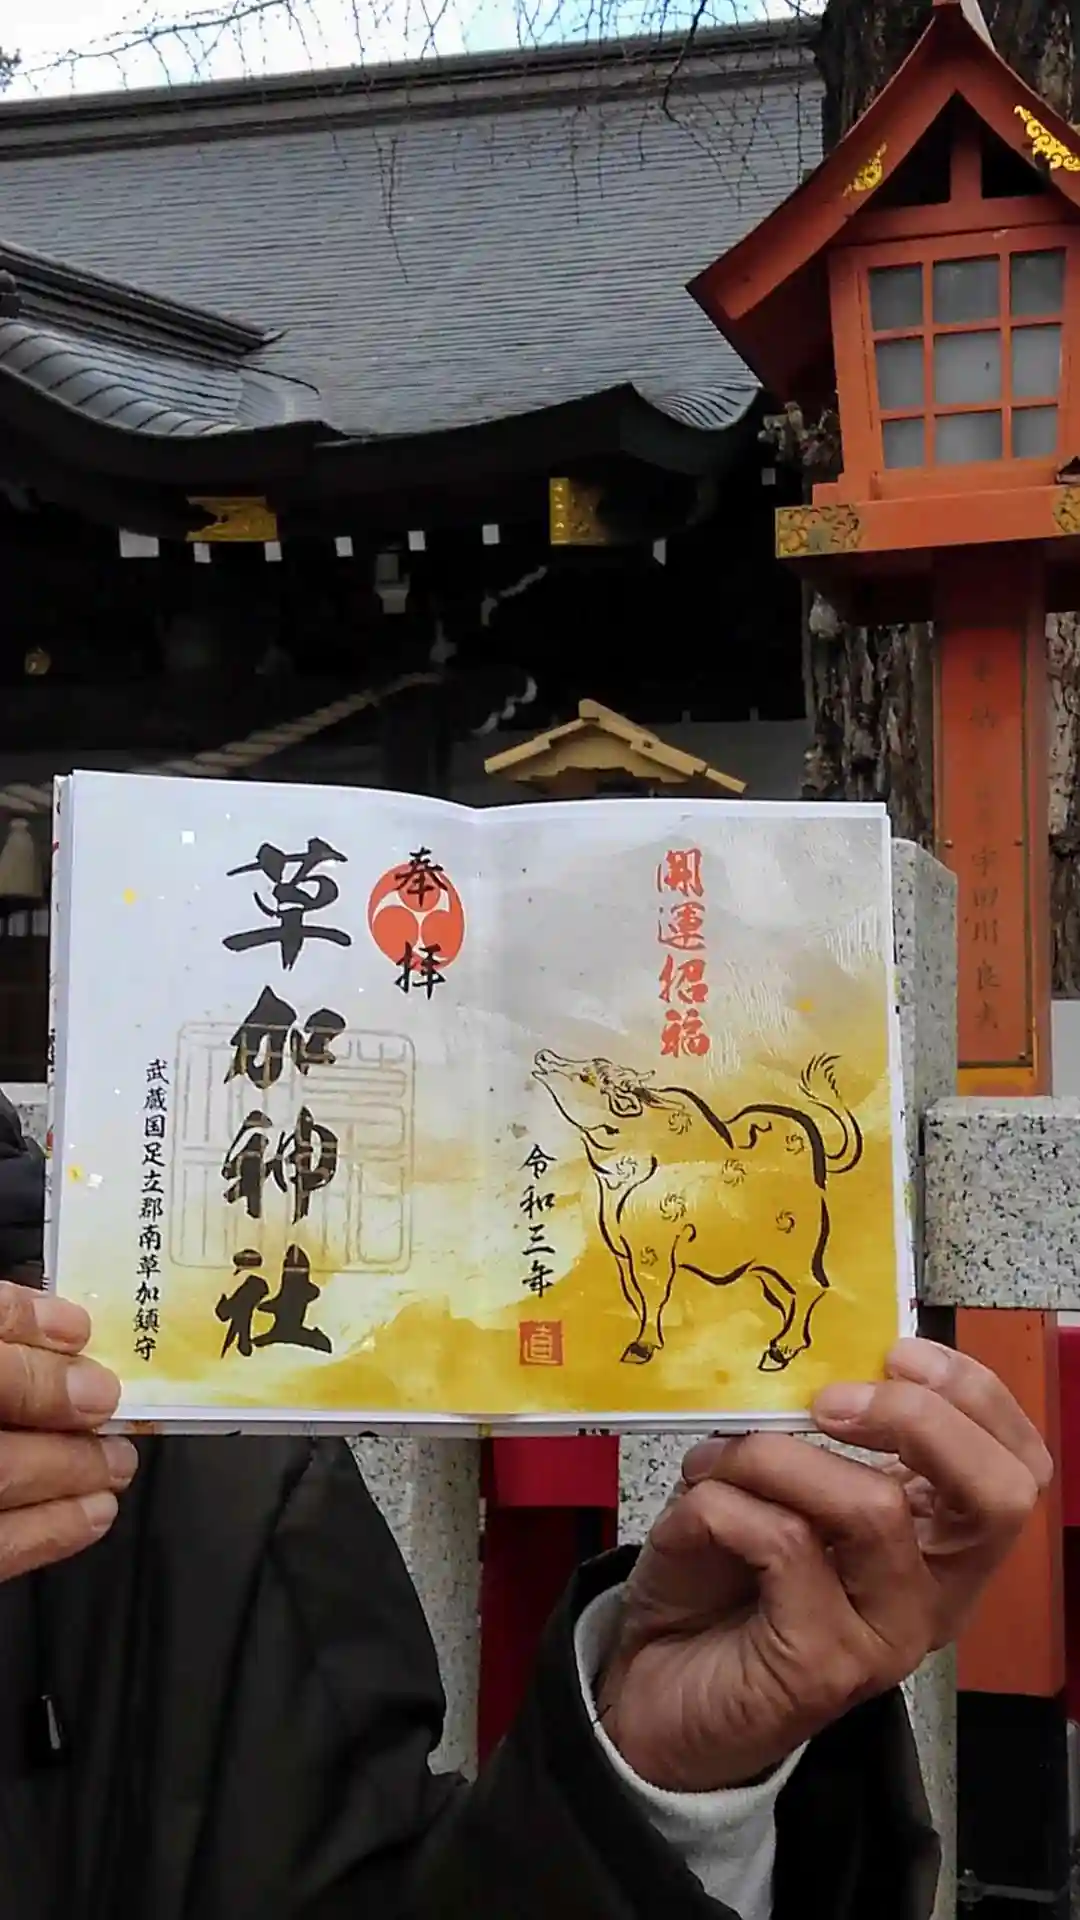 開運招福
令和三年
直
奉拝
草加神社
武蔵国足立郡南草加鎮守
宇田川良夫